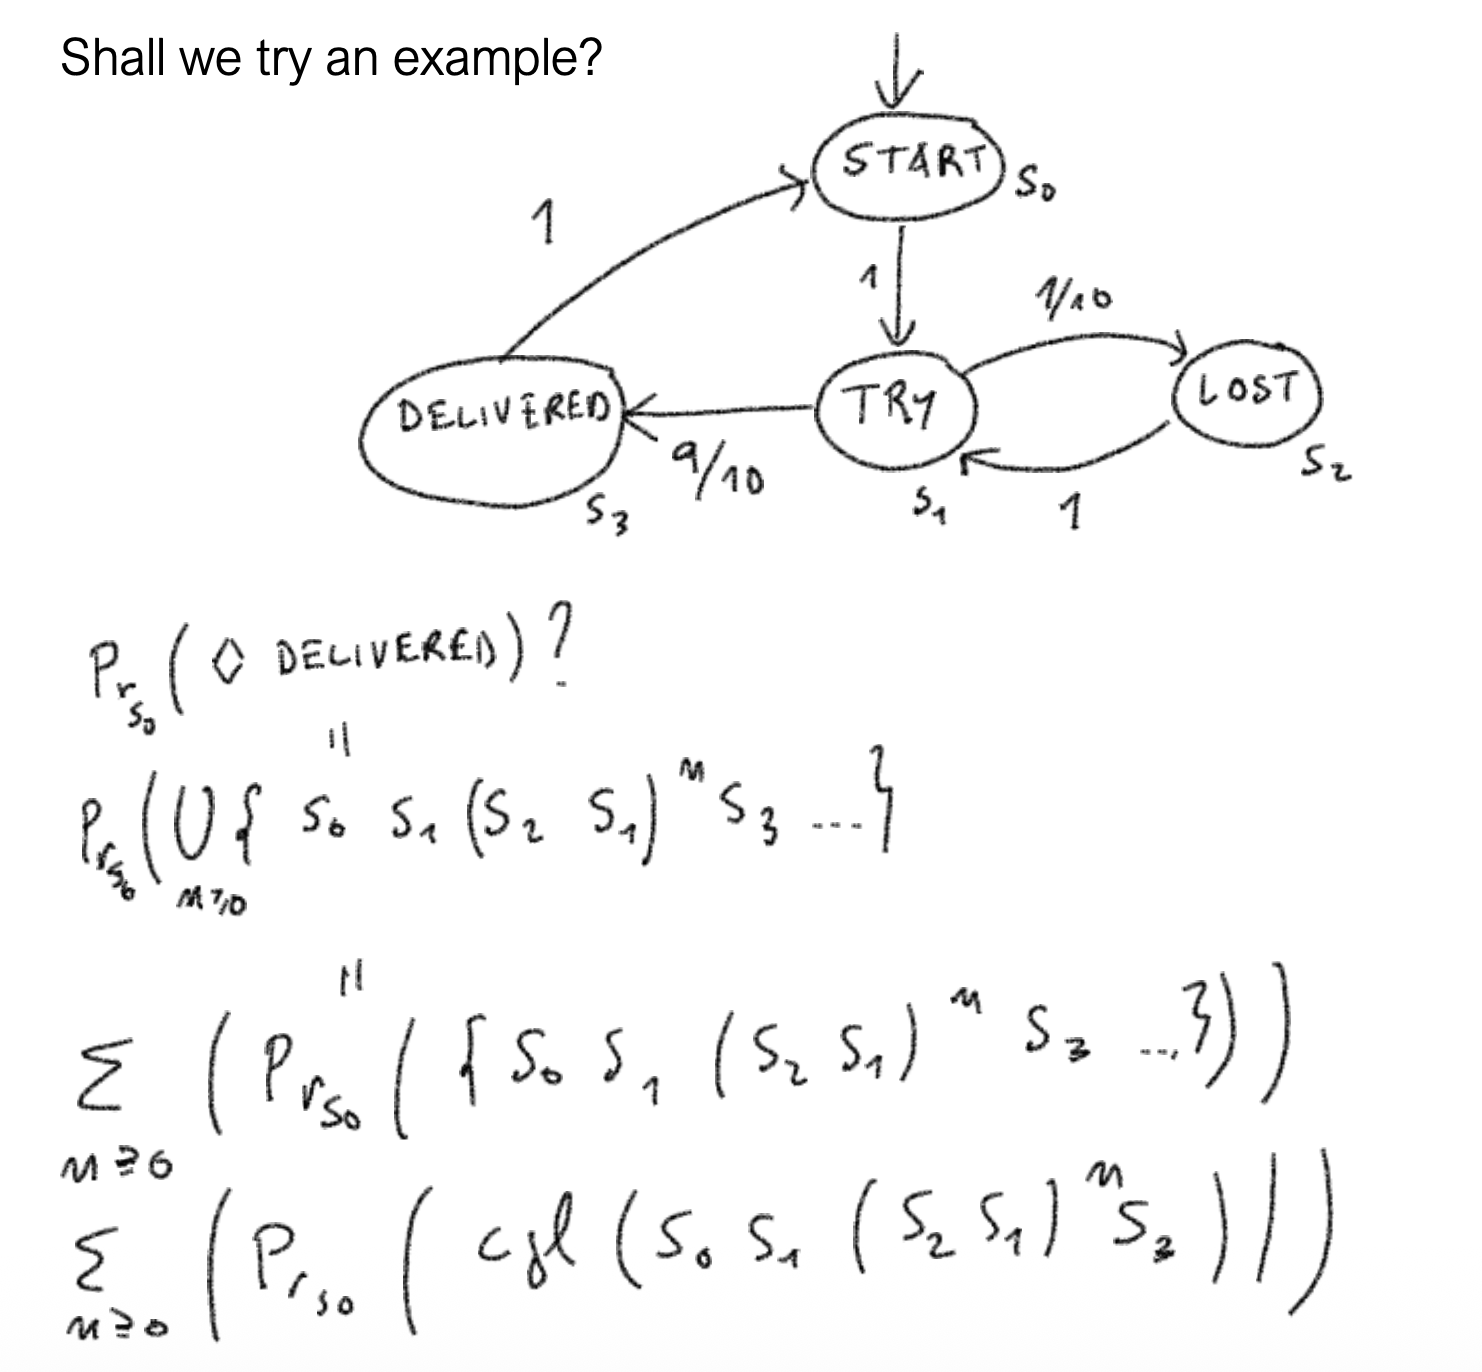 Shall we try an example?
START S₀
1
1
1/10
DELIVERED
TRY
LOST
9/10
S₃
S₁
1
S₂
Pr_S₀ ( ◇ DELIVERED ) ?
=
Pr_S₀ ( ∪_{n≥0} { S₀ S₁ (S₂ S₁)ⁿ S₃ ... }
=
Σ_{n≥0} ( Pr_S₀ ( { S₀ S₁ (S₂ S₁)ⁿ S₃ ... } ) )
Σ_{n≥0} ( Pr_S₀ ( cyl ( S₀ S₁ (S₂ S₁)ⁿ S₃ ) ) )